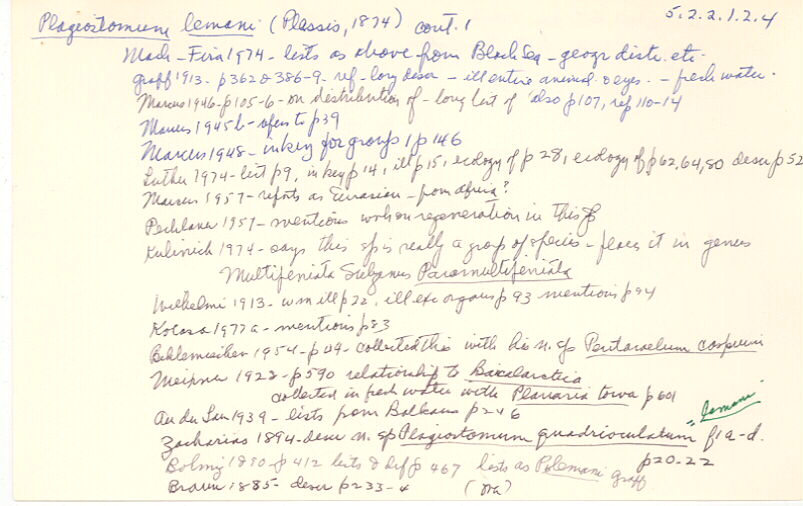 Plagiostomum lemani (Plassis, 1874) cont. 1 5.2.2.1.2.4
Mack-Fira 1974 - lists as above from Black Sea - geogr distr. etc.
Graff 1913 - p362 & 386-9 - ref - long descr - ill entire animal & eyes - fresh water.
Marcus 1946 - p105-6 - on distribution of - long list of also p107, ref 110-14
Marcus 1945b - refers to p39
Marcus 1948 - in key for groups 1 p146
Luther 1974 - list p9, in key p14, ill p15, ecology of p28, ecology of p62, 64, 80 descr p52
Marcus 1957 - reports as Eurasian - from Africa?
Pechlaner 1957 - mentions work on regeneration in this sp
Kulinich 1974 - says this sp is really a group of species - places it in genus
Multipeniata Subgenus Paramultipeniata
Wilhelmi 1913 - wm ill p22, ill exc organs p93 mentions p94
Kolasa 1977a - mentions p83
Beklemischev 1954 - p49 - collected this with his n. sp Pentacoelum caspium
Meixner 1928 - p590 relationship to Baicalarctia
collected in fresh water with Planaria torva p601
An der Lan 1939 - lists from Balkans p246
"lemani"
Zacharias 1894 - descr n. sp Plagiostomum quadrioculatum f1a-d.
p20-22
Böhmig 1890 - p412 lists & diff p467 lists as P lemani Graff
Braun 1885 - descr p233-4